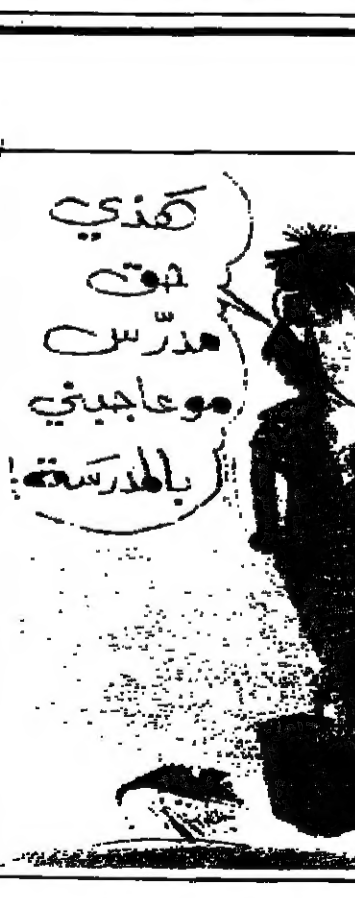 هذي
حق
مدرّس
مو عاجبني
بالمدرَسة!